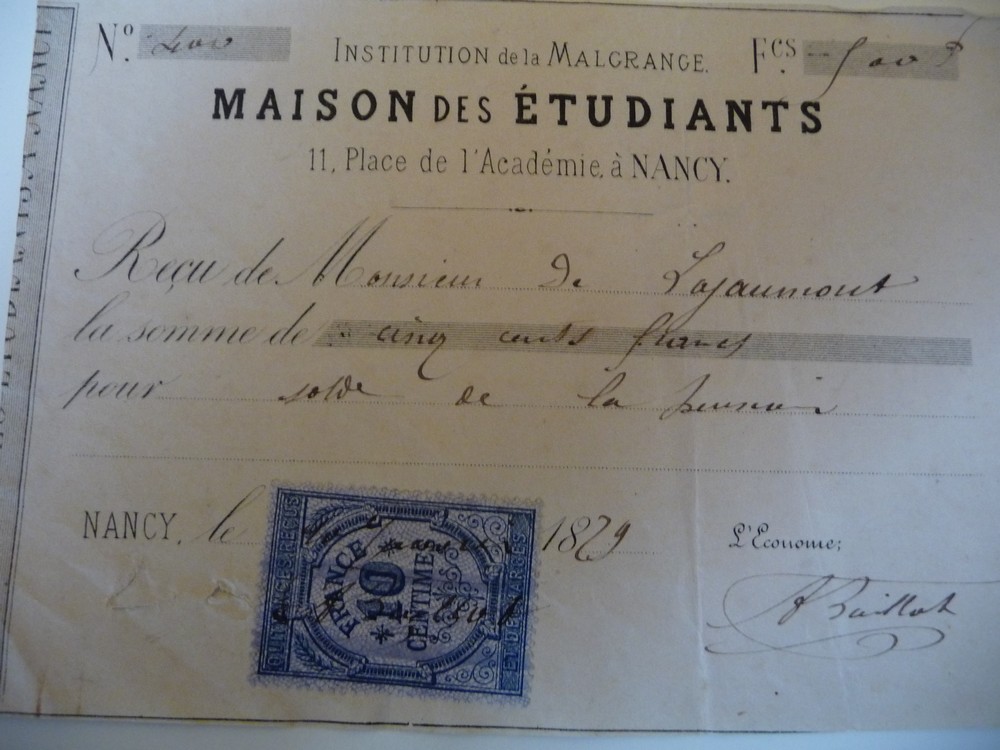 Nº 400 INSTITUTION de la MALGRANGE. Fcs 500 f
MAISON DES ÉTUDIANTS
11, Place de l'Académie, à NANCY.
Reçu de Monsieur De Lajaumont
la somme de cinq cents francs
pour solde de la pension
NANCY, le 1879 L'Econome,
FRANCE
10
CENTIMES
QUITTANCES, REÇUS
ET DÉCHARGES